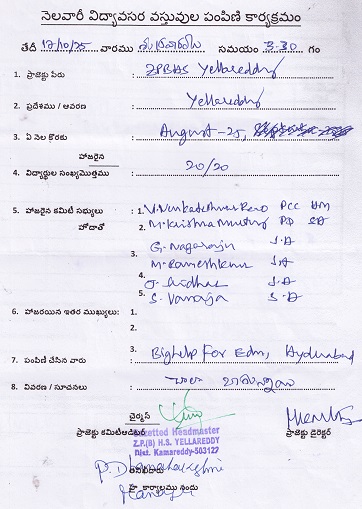 నెలవారీ విద్యావసర వస్తువుల పంపిణి కార్యక్రమం
తేదీ 17/10/25 వారము శుక్రవారం సమయం 3-30 గం
1. ప్రాజెక్టు పేరు ZPBHS Yellareddy
2. ప్రదేశము / ఆవరణ Yellareddy
3. ఏ నెల కొరకు August-25,
హాజరైన
4. విద్యార్థుల సంఖ్యమొత్తము 20/20
5. హాజరైన కమిటీ సభ్యులు : 1. V. Venkateshwar Rao PCC HM
హోదాతో 2. M. Krishna Murthy PD SA
3. G. Nagaraju S.A
4. M. Rameshkumar S.A
J. Sridhar S.A
5. S. Vanaja S.A
6. హాజరయిన ఇతర ముఖ్యులు: 1.
2.
3.
7. పంపిణి చేసిన వారు : BigHelp For Edn, Hyderabad
8. వివరణ / సూచనలు : చాలా బాగున్నాయి
ఛైర్మన్
ప్రాజెక్టు కమిటీ
Gazetted Headmaster
Z.P.(B) H.S. YELLAREDDY
Dist. Kamareddy-503122
ప్రాజెక్టు డైరెక్టర్
హై కార్యాలము నందు